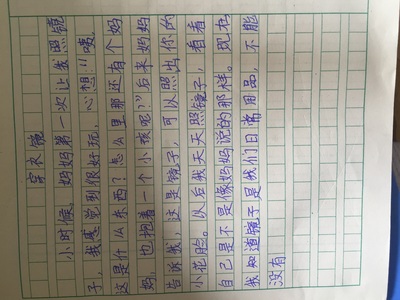 穿衣镜
小时候,妈妈第一次让我照镜
子,我感觉到很好玩,心想"咦,
这是什么东西?怎么里那还有个妈
妈,也抱着一个小孩呢?"后来妈妈
告诉我,这是镜子,可以照出你的
小花脸。以后我天天照镜子,看看
自己是不是像妈妈说的那样。现在
我知道镜子是我们日常用品,不能
没有